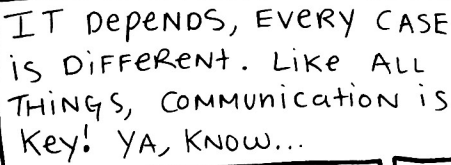 IT DEPENDS, EVERY CASE
is DiFFERENt. LiKE ALL
THINGS, COMMUnicAtiON is
Key! YA, KNOW...